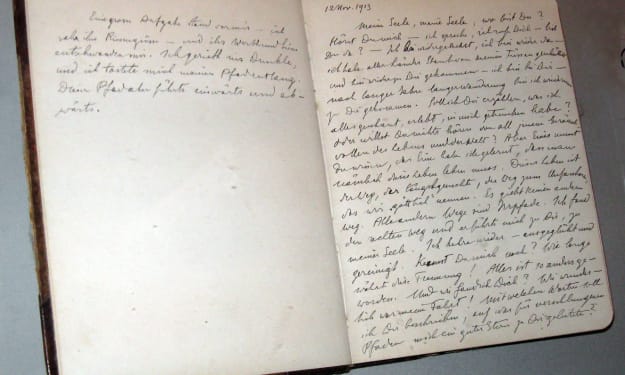 Aufgabe stand vor mir – ich
sah ihr – und ihr
entschwand mir. Ich geriet ins Dunkle,
und ich tastete mich meinen Pfad entlang.
Pfad aber führte einwärts und ab-
wärts.
12 Nov. 1913
Meine Seele, meine Seele, wo bist Du?
Hörst Du mich – ich spreche, ich rufe Dich – bist
Du da? – Ich bin wiedergekehrt, ich bin wieder da –
ich habe aller Länder Staub von meinen Füssen geschüttelt
und bin zu Dir gekommen – ich bin bei Dir –
nach langen Jahren langer Wanderung bin ich wieder
zu Dir gekommen. Soll ich Dir erzählen, was ich
alles geschaut, erlebt, in mich getrunken habe?
Oder willst Du nichts hören von all jenem
des Lebens und der Welt? Aber Eines musst
Du wissen, das Eine habe ich gelernt, dass man
dieses Leben leben muss. Dieses Leben ist
der Weg, der längst gesuchte, der Weg zum
das wir göttlich nennen. Es giebt keinen andern
Weg. Alle andern Wege sind Irrpfade. Ich fand
den rechten Weg und er führte mich zu Dir, zu
meiner Seele. Ich kehre wieder – ausgeglüht und
gereinigt. Kennst Du mich noch? Wie lange
währte die Trennung! Alles ist so anders ge-
worden. Und wie fand ich Dich? Wie wunder-
lich war meine Fahrt! Mit welchen Worten soll
ich Dir beschreiben, auf was für verschlungenen
Pfaden mich ein guter Stern zu Dir geleitete?